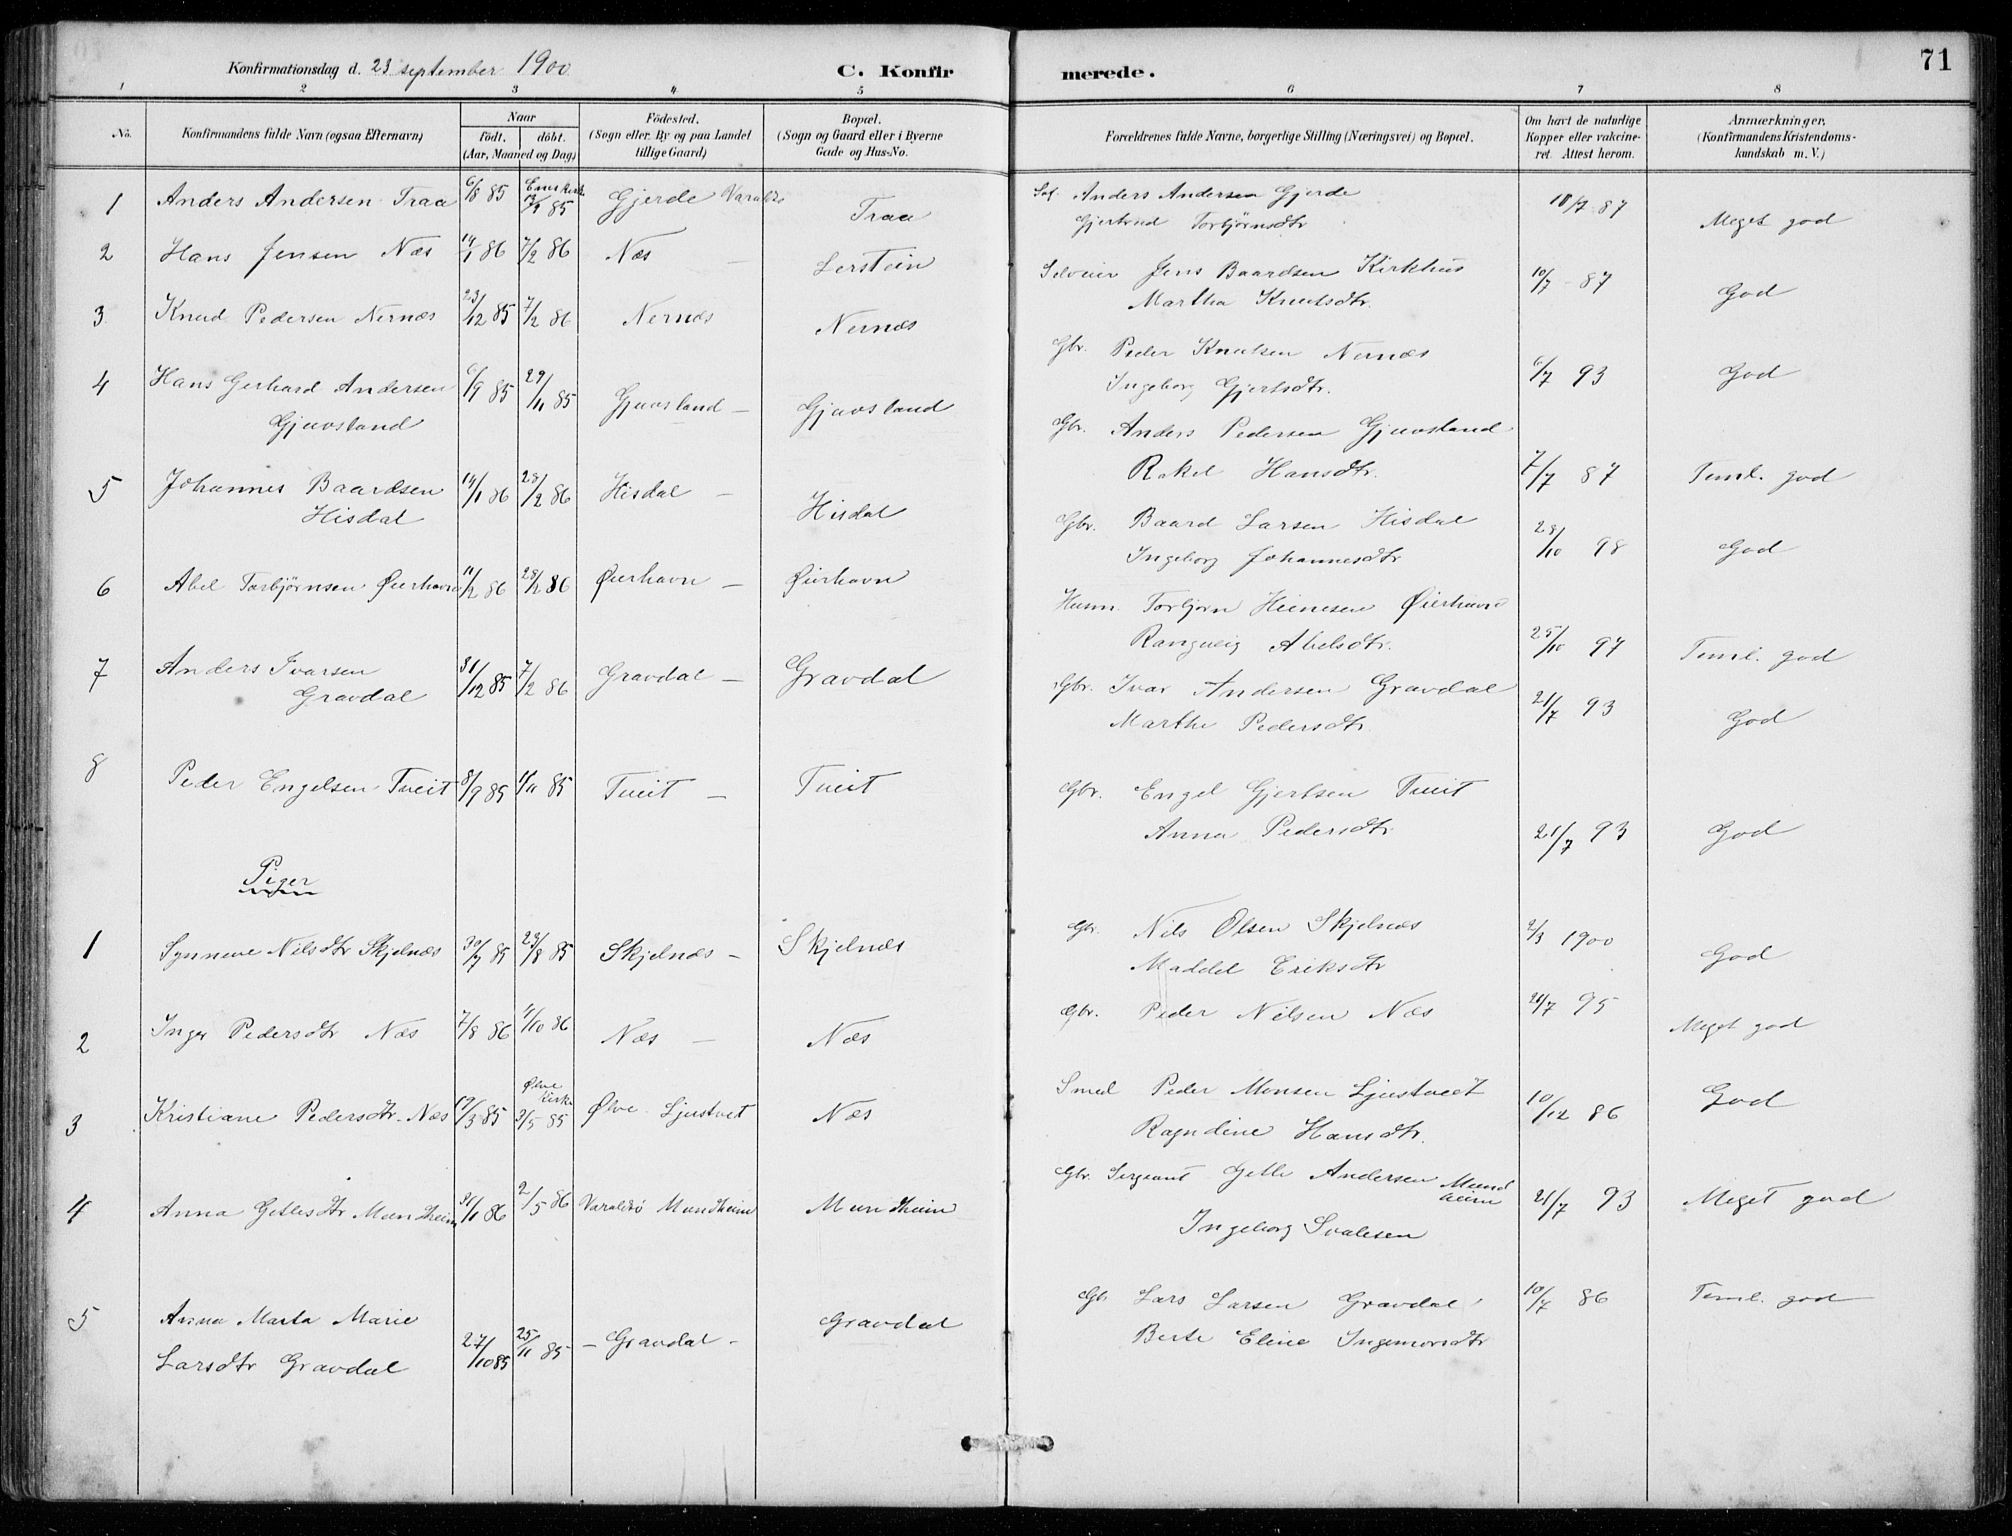 71
Konfirmationsdag d. 23 september 1900
C. Konfirmerede.
1 2 3 4 5 6 7 8
No.
Konfirmandens fulde Navn (ogsaa Efternavn)
Naar
födt. döbt.
(Aar, Maaned og Dag)
Födested.
(Sogn eller By og paa Landet
tillige Gaard)
Bopæl.
(Sogn og Gaard eller i Byerne
Gade og Hus-No.
Forældrenes fulde Navne, borgerlige Stilling (Næringsvei) og Bopæl.
Om havt de naturlige
Kopper eller vakcine-
ret. Attest herom.
Anmærkninger,
(Konfirmandens Kristendoms-
kundskab m. V.)
1 Anders Andersen Traa 6/8 85 85 Gjerde Varaldsø Traa
Anders Andersen Gjerde 10/7 87 Meget god
Gjertrud Torbjørnsdtr
2 Hans Jensen Næs 19/1 86 7/2 86 Næs — Lerstein
Selveier Jens Baardsen Kirkhus 10/7 87 God
Martha Knutsdtr.
3 Knud Pedersen Nernæs 23/12 85 7/2 86 Nernæs Nernæs
Gbr. Peder Knutsen Nernæs 6/7 93 God
Ingeborg Gjertsdtr.
4 Hans Gerhard Andersen 6/9 85 29/11 85 Gjuvsland — Gjuvsland
Gjuvsland
Gbr. Anders Pedersen Gjuvsland
Rakel Hansdtr. 7/7 87 Teml. god
5 Johannes Baardsen 14/1 86 28/2 86 Hisdal — Hisdal
Hisdal
Gbr. Baard Larsen Hisdal 28/10 98 God
Ingeborg Johannesdtr
6 Abel Torbjörnsen Øierhavn 11/2 86 28/2 86 Øierhavn — Øierhavn
Husm. Torbjørn Heinesen Øierhavn
Rangveig Abelsdtr. 25/10 97 Teml. god
7 Anders Ivarsen 31/12 85 7/2 86 Gravdal — Gravdal
Gravdal
Gbr. Ivar Andersen Gravdal 21/7 93 God
Marthe Pedersdtr.
8 Peder Engelsen Tveit 8/9 85 1/11 85 Tveit — Tveit
Gbr. Engel Gjertsen Tveit
Anna Pedersdtr. 21/7 93 God
Piger
1 Synneve Nilsdtr Skjelnæs 30/7 85 23/8 85 Skjelnæs — Skjelnæs
Gbr. Nils Olsen Skjelnæs 2/3 1900 God
Maddel Eriksdtr
2 Inger Pedersdtr Næs 7/8 86 /10 86 Næs — Næs
Gbr. Peder Nilsen Næs 21/7 95 Meget god
3 Kristiane Pedersdtr. Næs 17/3 85 Ølve Kirke 3/5 85 Ølve Ljustvet Næs
Smed Peder Monsen Ljustveit 10/12 86 God
Ragndine Hansdtr.
4 Anna Gitlesdtr Mundheim 31/1 86 2/5 86 Varaldsø Mundheim Mundheim
Gbr. Sergeant Gitle Andersen Mundheim 21/7 93 Meget god
Ingeborg Svalesen
5 Anna Marta Marie
Larsdtr Gravdal 27/10 85 25/11 85 — Gravdal — Gravdal
Gb. Lars Larsen Gravdal 10/7 86 Teml. god
Berte Eline Ingemorsdtr